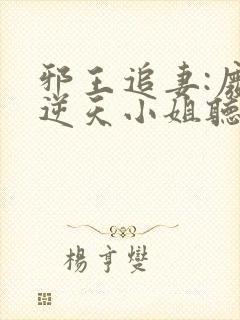 邪王追妻:
逆天小姐聽
楊亨燮